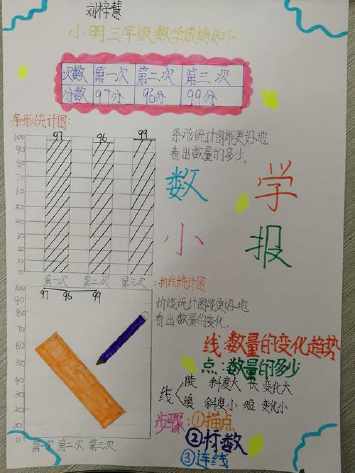 刘梓慧
小明三年级数学成绩统计
次数 第一次 第二次 第三次
分数 97分 96分 99分
条形统计图:
97 96 99
100
90
80
70
60
50
40
30
20
10
0
第一次 第二次 第三次
条形统计图能更好地
看出数量的多少。
数 学
小 报
折线统计图
97 96 99
100
90
80
70
60
50
40
30
20
10
0
第一次 第二次 第三次
折线统计图能更好地
看出数量的变化。
线:数量的变化趋势
点:数量的多少
线
陡 斜度大 变化大
缓 斜度小 变化小
步骤:①描点
②标数
③连线